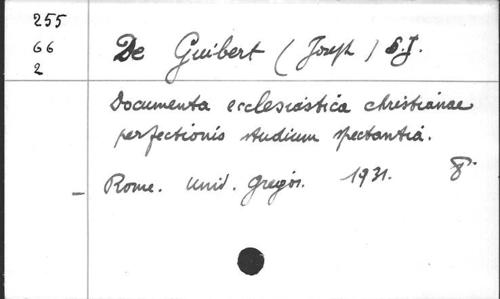 255
66
2
De Guibert (Joseph) S.J.
Documenta ecclesiastica christianae
perfectionis studium spectantia.
Rome. Univ. Gregor. 1931. 8°.